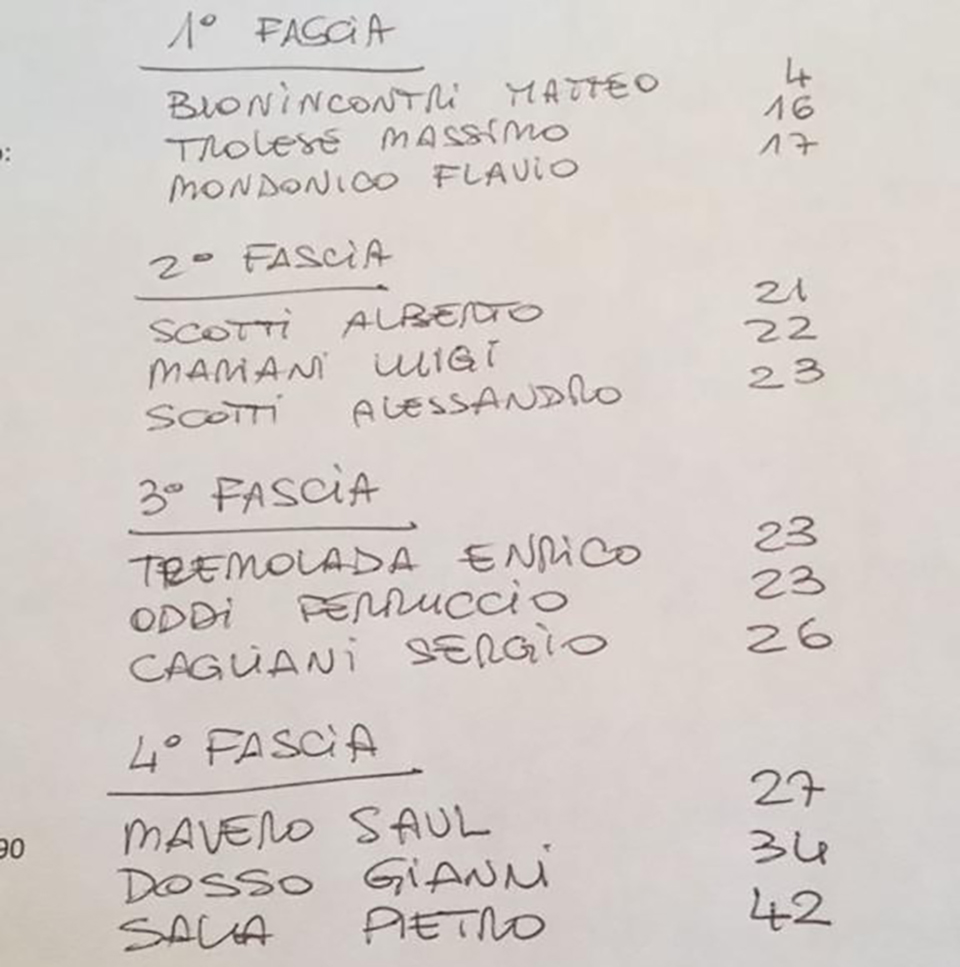 1° FASCIA
BUONINCONTRI MATTEO 4
TROLESE MASSIMO 16
MONDONICO FLAVIO 17
2° FASCIA
SCOTTI ALBERTO 21
MARIANI LUIGI 22
SCOTTI ALESSANDRO 23
3° FASCIA
TREMOLADA ENRICO 23
ODDI FERRUCCIO 23
CAGLIANI SERGIO 26
4° FASCIA
MAVERO SAUL 27
90
DOSSO GIANNI 34
SALA PIETRO 42